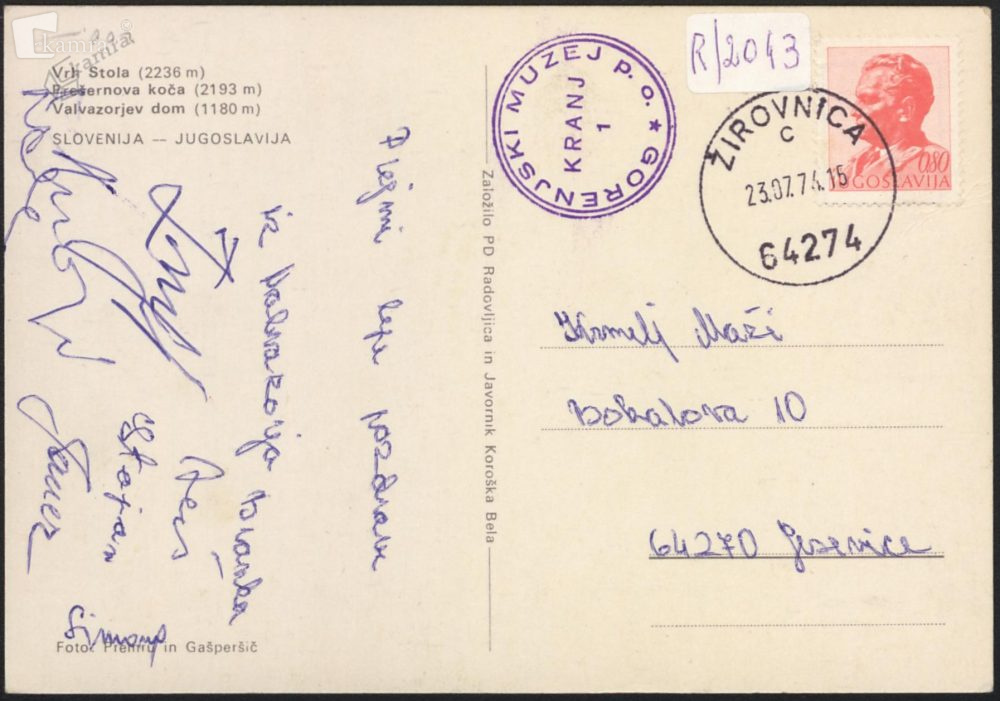 kamra
kamra
Vrh Stola (2236 m)
Prešernova koča (2193 m)
Valvazorjev dom (1180 m)
SLOVENIJA — JUGOSLAVIJA
lepe pozdrave
iz Branka
Stojan
Janez
Foto: Premru in Gašperšič
Založilo PD Radovljica in Javornik Koroška Bela
GORENJSKI MUZEJ p. o. ★
KRANJ
1
R/2043
ŽIROVNICA
C
23.07.74.15
64274
0,80
JUGOSLAVIJA
Krmelj Maži
Bokalova 10
64270 Jesenice